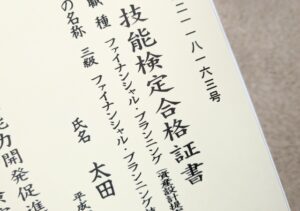 二一一八一六三号
技能検定合格証書
職種 ファイナンシャル・プランニング(資産設計提
の名称 三級 ファイナンシャル・プランニング
氏名 太田
平成
能力開発促進